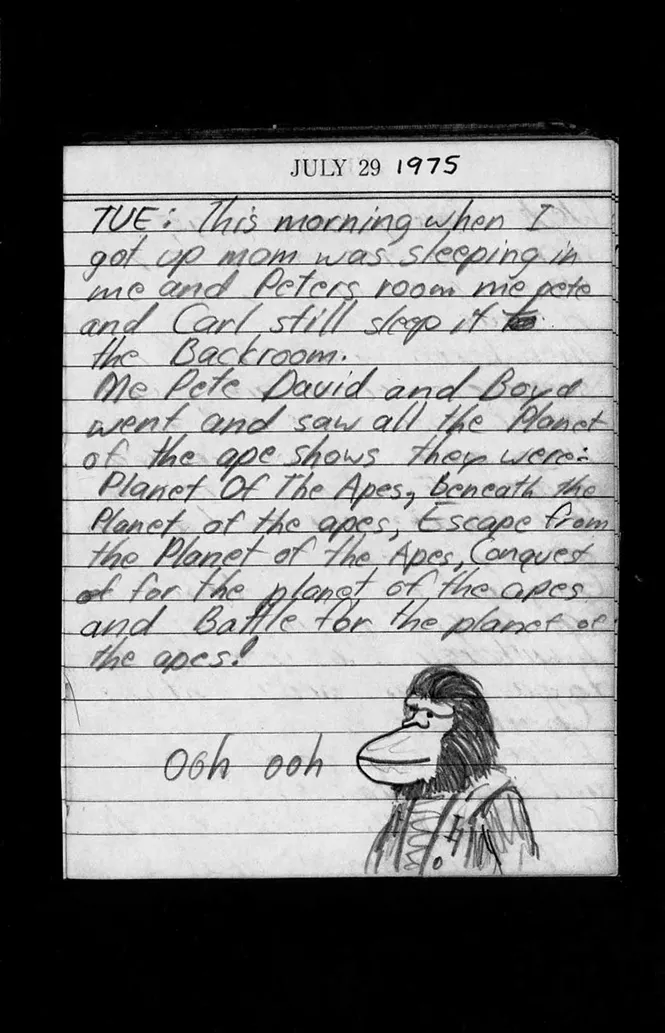 JULY 29 1975
TUE: This morning when I
got up mom was sleeping in
me and Peters room me pete
and Carl still sleep it
the Backroom.
Me Pete David and Boyd
went and saw all the Planet
of the ape shows they were:
Planet Of The Apes, Beneath the
Planet of the apes, Escape from
the Planet of the Apes, Conquest
of for the planet of the apes
and Battle for the planet of
the apes!
Ooh ooh